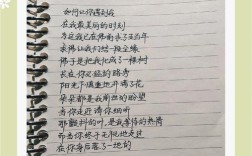 如何让你遇到我
在我最美丽的时刻
为这我已在佛前求了五百年
求佛让我们结一段尘缘
佛于是把我化成了一棵树
长在你必经的路旁
阳光下慎重地开满了花
朵朵都是我前世的盼望
当你走近请你细听
那颤抖的叶,是我等待的热情
而当你终于无视地走过
在你身后落了一地的